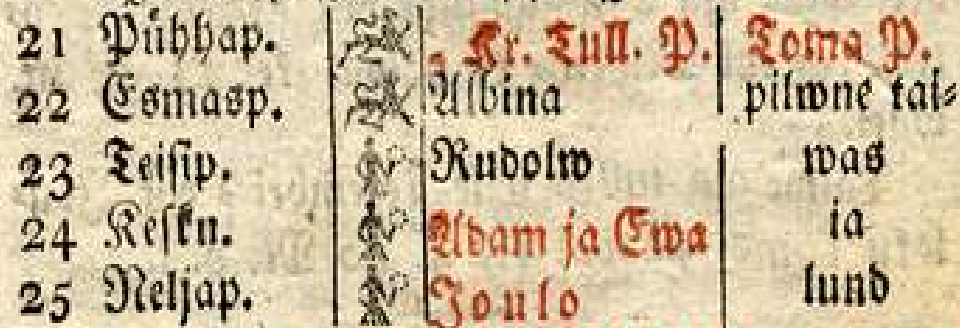 21 Pühhap. 4 Kr. Tull. P. Toma P.
22 Esmasp. Albina pilwne tai⸗
23 Teisip. Rudolw was
24 Keskn. Adam ja Ewa ja
25 Neljap. Joulo lund